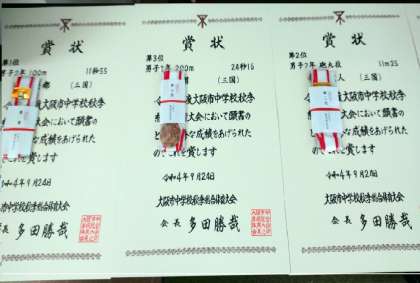 賞状
第1位
男子2年 100m 11秒55
郎 (三国)
大阪市中学校秋季
大会において頭書の
な成績をあげられた
賞します
令和4年9月24日
大阪市中学校秋季総合体育大会
会長 多田勝哉
賞状
第3位
男子1年 200m 24秒16
(三国)
大阪市中学校秋季
大会において頭書の
成績をあげられた
賞します
令和4年9月24日
大阪市中学校秋季総合体育大会
会長 多田勝哉
賞状
第2位
男子2年 砲丸投 11m25
人 (三国)
大阪市中学校秋季
大会において頭書の
な成績をあげられた
のでこれを賞します
令和4年9月24日
大阪市中学校秋季総合体育大会
会長 多田勝哉